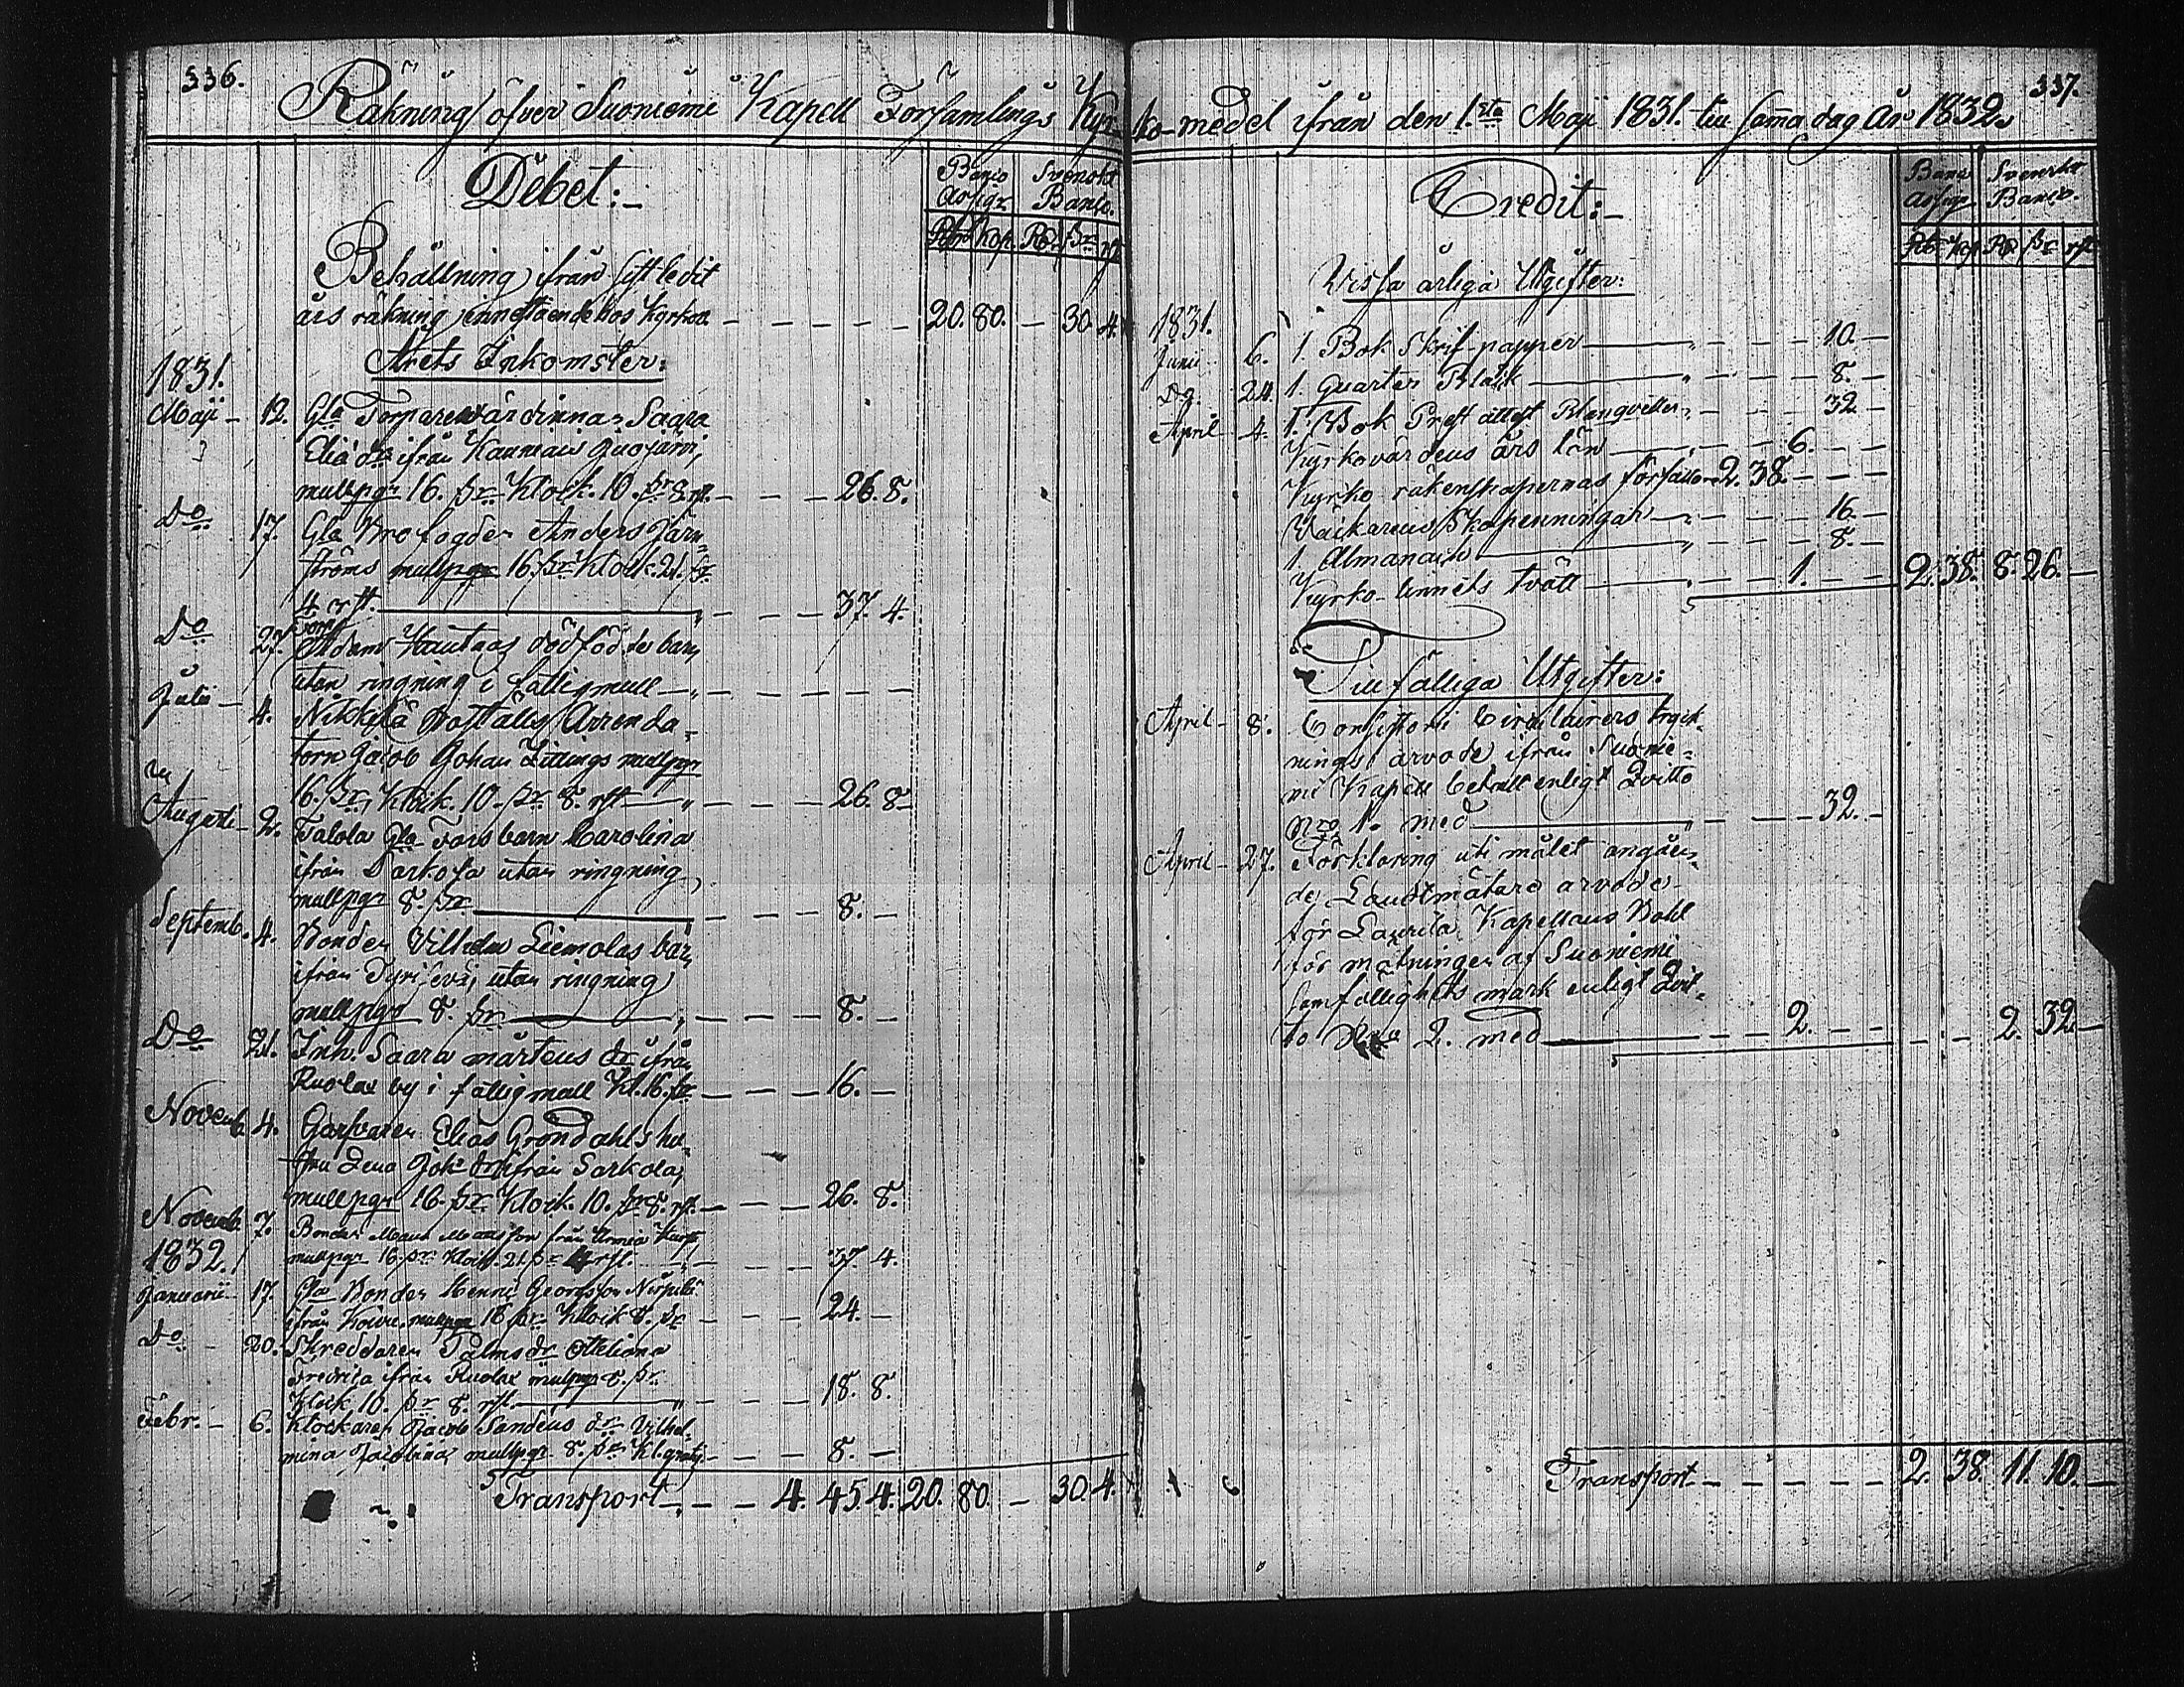 336.
Räkning öfver Suoniemi Kapell Församlings Kyr-
Debet:
Banco Assign. Svenskt Banco.
Rbr Kop. Rd. ſk. rst
Behållning ifrån sistledit
års räkning innestående hos Kyrkan — — — — — 20. 80. — 30. 4.
Årets Inkomster:
1831.
Maji — 12. Gla Torparevärdinnan Saara
Elia dr ifrån
mullpgr 16. ſk. Klock. 10. ſk 8 rst. — — — 26. 8.
Do 17. Gla Brofogden Anders Järn-
ströms mullpgr 16. ſk. Klock. 21. ſk.
4 rst. — — — 37. 4.
Do 27. Torp. Adam Hautaas dödfödde barn
utan ringning i fattigmull — — — — — —
Julii — 4. Nikkilä Boställs Arrenda-
torn Jacob Johan Zittings mullpgr
16. ſk. Klock. 10. ſk. 8. rst — — — 26. 8.
Augusti — 2. Talola Gla Fars barn Carolina
ifrån Sarkola utan ringning
mullpgr 8. ſk. — — — 8. —
Septemb. 4. Bonden Vilhelm Liemolas barn
ifrån utan ringning
mullpgr 8. ſk. — — — 8. —
Do 21. Inh. Saara Mårtens dr ifrån
Kuolax by i fattigmull Kl. 16. ſk — — — 16. —
Novemb. 4. Garfvaren Elias Gröndahls hu-
stru Lena Joh. dr ifrån Sarkola,
mullpgr 16. ſk. Klock. 10. ſk. 8. rst. — — — 26. 8.
Novemb 7. Bonden Matts Mattsson från
mullpgr 16 ſk. Klock. 21. ſk 4 rst. — — — 37. 4.
1832.
Januarii 17. Gla Bonden Henric Georgsson
ifrån mullpgr 16 ſk. Klock 8. ſk — — — 24. —
Do — 20. Skreddaren Palms dr Ottiliana
Fredrica ifrån Kuolax mullpgr 8. ſk.
Klock. 10. ſk 8. rst. — — — 18. 8.
Febr. — 6. Klockaren Jacob Sandens dr Vilhel-
mina Jacobina mullpgr 8. ſk. Kl. gratis — — — 8. —
Transport — — — 4. 45. 4. 20. 80. — 30. 4.
337.
ko-medel ifrån den 1.sta Maji 1831. till sama dag År 1832.
Credit:
Banco Assign. Svenskt Banco.
Rbr Kop. Rd ſk. rst
Vissa årliga Utgifter:
1831.
Junii 6. 1. Bok Skrif-papper — — — 10. —
Do. 24. 1. Quarter Bläck — — — 8. —
April 4. 1. Bok Prest attest Blanqvetter — — — 32. —
Kyrkovärdens års lön — — — 6. — —
Kyrko räkenskapernas författan 2. 38. — — —
Väckarens Skopenningar — — — 16. —
1. Almanach — — — 8. —
Kyrko-linnets tvätt — — — 1. — — 2. 38. 8. 26. —
Tillfälliga Utgifter:
April — 8. Consistorii Circulairers tryck-
nings arvode ifrån Suonie-
mi Kapell betalt enligt Qvitto
Nro 1. med — — — 32. —
April — 27. Förklaring uti målet angåen-
de Landtmätare arvode
för Laurila Kapellans Bohl
för mätningen af Suoniemi
samfällighets mark enligt Qvit-
to Nro 2. med — — — 2. — — — — 2. 32. —
Transport — — — — — 2. 38. 11. 10. —